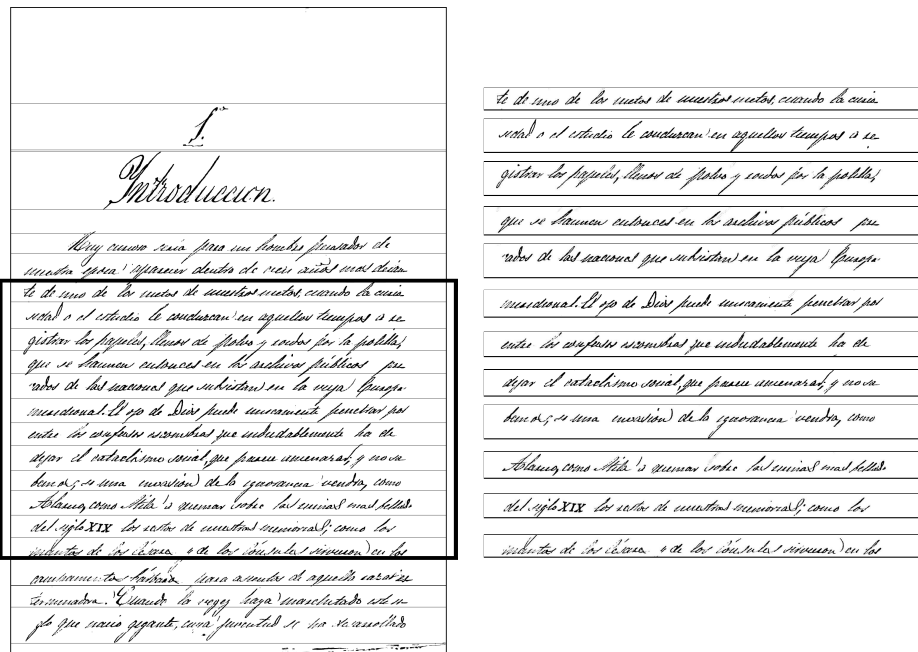 1.
Introduccion.
Muy curioso seria para un hombre pensador de
nuestra epoca aparecer dentro de cien años mas delan
te de uno de los nietos de nuestros nietos, cuando la curio
sidad o el estudio le conduzcan en aquellos tiempos a re
gistrar los papeles, llenos de polvo y roidos por la polilla,
que se hacinen entonces en los archivos públicos
vados de las naciones que subsistan en la vieja Europa
meridional. El ojo de Dios puede unicamente penetrar por
entre los confusos escombros que indudablemente ha de
dejar el cataclismo social, que parece amenazar, y no sa
bemos si una invasion de la ignorancia vendra, como
como Atila a quemar sobre las ruinas mas bellas
del siglo XIX los restos de nuestras memorias; como los
mantos de los Césares de los cónsules sirvieron en los
campamentos para asientos de aquella
Cuando la vejez haya marchitado este si
glo que nacio gigante, cuya juventud se ha desarrollado
te de uno de los nietos de nuestros nietos, cuando la curio
sidad o el estudio le conduzcan en aquellos tiempos a re
gistrar los papeles, llenos de polvo y roidos por la polilla,
que se hacinen entonces en los archivos públicos
vados de las naciones que subsistan en la vieja Europa
meridional. El ojo de Dios puede unicamente penetrar por
entre los confusos escombros que indudablemente ha de
dejar el cataclismo social, que parece amenazar, y no sa
bemos si una invasion de la ignorancia vendra, como
como Atila a quemar sobre las ruinas mas bellas
del siglo XIX los restos de nuestras memorias; como los
mantos de los Césares de los cónsules sirvieron en los